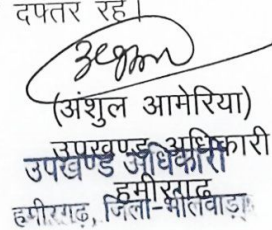 दफ्तर रहे।
(अंशुल आमेरिया)
उपखण्ड अधिकारी
हमीरगढ़
उपखण्ड अधिकारी
हमीरगढ़, जिला-भीलवाड़ा